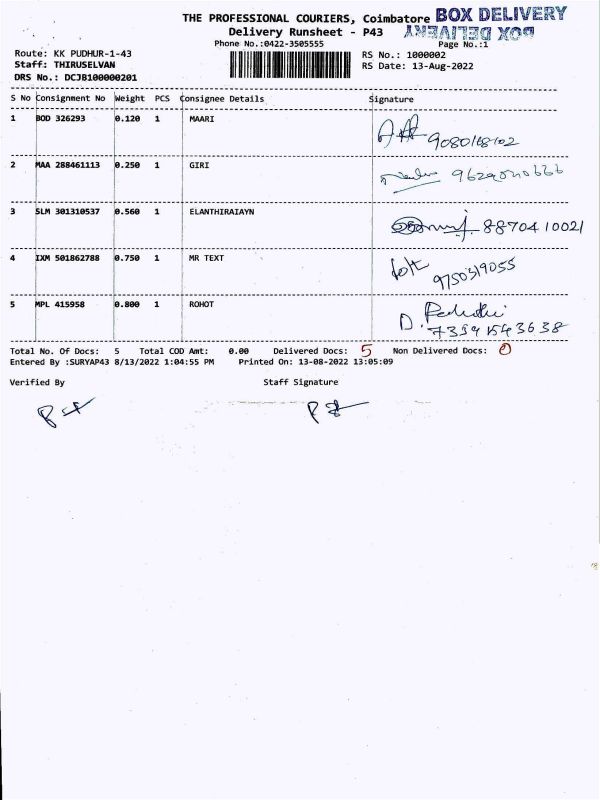 THE PROFESSIONAL COURIERS, Coimbatore BOX DELIVERY
Delivery Runsheet - P43 BOX DELIVERY
Phone No.:0422-3505555 Page No.:1
Route: KK PUDHUR-1-43 RS No.: 1000002
Staff: THIRUSELVAN RS Date: 13-Aug-2022
DRS No.: DCJB100000201
S No Consignment No Weight PCS Consignee Details Signature
1 BOD 326293 0.120 1 MAARI
9080168102
2 MAA 288461113 0.250 1 GIRI
3 SLM 301310537 0.560 1 ELANTHIRAIAYN
8870410021
4 IXM 501862788 0.750 1 MR TEXT
9750319055
5 MPL 415958 0.800 1 ROHOT
D.
7339543638
Total No. Of Docs: 5 Total COD Amt: 0.00 Delivered Docs: 5 Non Delivered Docs: 0
Entered By :SURYAP43 8/13/2022 1:04:55 PM Printed On: 13-08-2022 13:05:09
Verified By Staff Signature